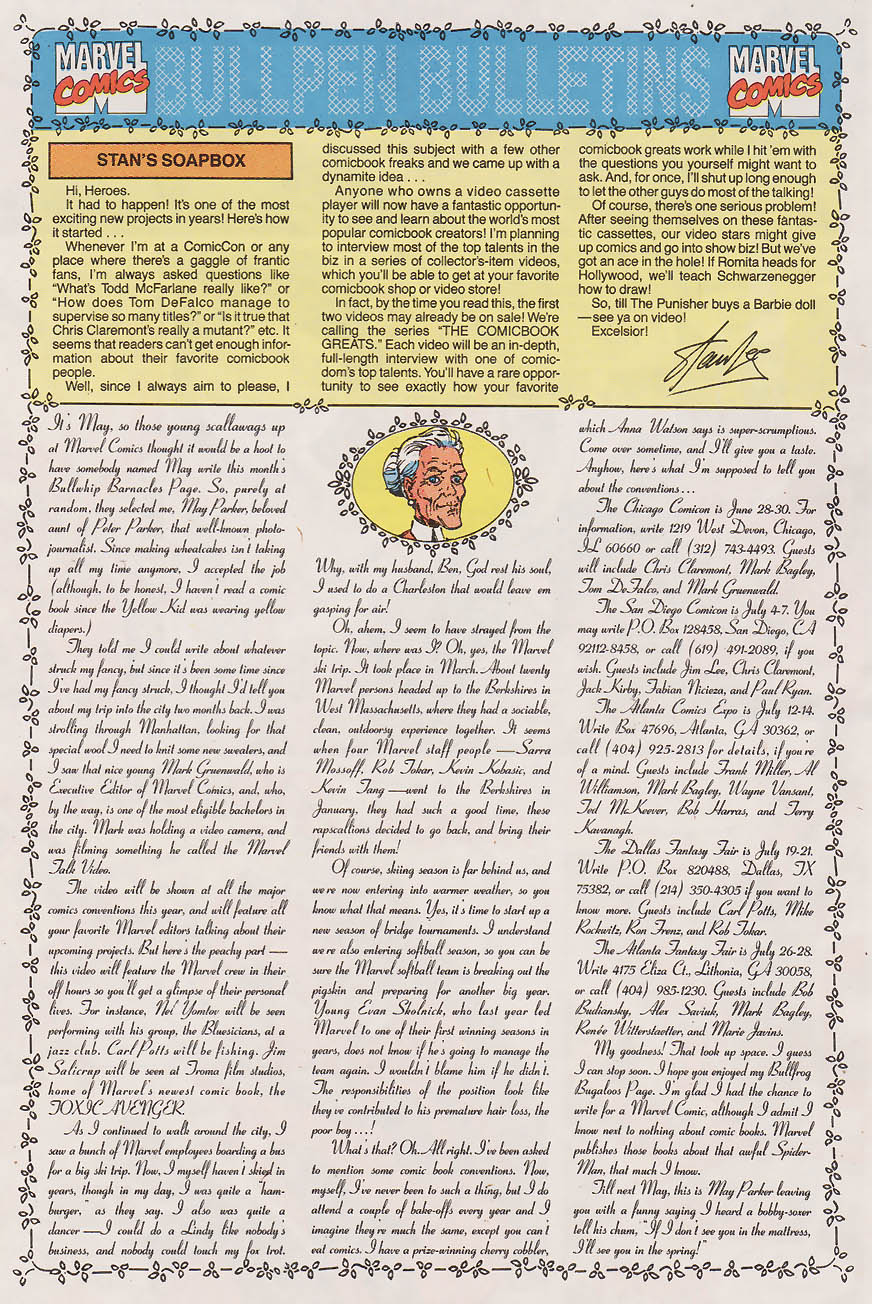 MARVEL
COMICS
M
BULLPEN BULLETINS
MARVEL
COMICS
M
STAN'S SOAPBOX
Hi, Heroes.
It had to happen! It's one of the most
exciting new projects in years! Here's how
it started . . .
Whenever I'm at a ComicCon or any
place where there's a gaggle of frantic
fans, I'm always asked questions like
"What's Todd McFarlane really like?" or
"How does Tom DeFalco manage to
supervise so many titles?" or "Is it true that
Chris Claremont's really a mutant?" etc. It
seems that readers can't get enough infor-
mation about their favorite comicbook
people.
Well, since I always aim to please, I
discussed this subject with a few other
comicbook freaks and we came up with a
dynamite idea . . .
Anyone who owns a video cassette
player will now have a fantastic opportun-
ity to see and learn about the world's most
popular comicbook creators! I'm planning
to interview most of the top talents in the
biz in a series of collector's-item videos,
which you'll be able to get at your favorite
comicbook shop or video store!
In fact, by the time you read this, the first
two videos may already be on sale! We're
calling the series "THE COMICBOOK
GREATS." Each video will be an in-depth,
full-length interview with one of comic-
dom's top talents. You'll have a rare oppor-
tunity to see exactly how your favorite
comicbook greats work while I hit 'em with
the questions you yourself might want to
ask. And, for once, I'll shut up long enough
to let the other guys do most of the talking!
Of course, there's one serious problem!
After seeing themselves on these fantas-
tic cassettes, our video stars might give
up comics and go into show biz! But we've
got an ace in the hole! If Romita heads for
Hollywood, we'll teach Schwarzenegger
how to draw!
So, till The Punisher buys a Barbie doll
—see ya on video!
Excelsior!
Stan Lee
It's May, so those young scallawags up
at Marvel Comics thought it would be a hoot to
have somebody named May write this month's
Bullwhip Barnacles Page. So, purely at
random, they selected me, May Parker, beloved
aunt of Peter Parker, that well-known photo-
journalist. Since making wheatcakes isn't taking
up all my time anymore, I accepted the job
(although, to be honest, I haven't read a comic
book since the Yellow Kid was wearing yellow
diapers.)
They told me I could write about whatever
struck my fancy, but since it's been some time since
I've had my fancy struck, I thought I'd tell you
about my trip into the city two months back. I was
strolling through Manhattan, looking for that
special wool I need to knit some new sweaters, and
I saw that nice young Mark Gruenwald, who is
Executive Editor of Marvel Comics, and, who,
by the way, is one of the most eligible bachelors in
the city. Mark was holding a video camera, and
was filming something he called the Marvel
Talk Video.
The video will be shown at all the major
comics conventions this year, and will feature all
your favorite Marvel editors talking about their
upcoming projects. But here's the peachy part —
this video will feature the Marvel crew in their
off hours so you'll get a glimpse of their personal
lives. For instance, Nel Yomtov will be seen
performing with his group, the Bluesicians, at a
jazz club. Carl Potts will be fishing. Jim
Salicrup will be seen at Troma film studios,
home of Marvel's newest comic book, the
TOXIC AVENGER.
As I continued to walk around the city, I
saw a bunch of Marvel employees boarding a bus
for a big ski trip. Now, I myself haven't skied in
years, though in my day, I was quite a "ham-
burger," as they say. I also was quite a
dancer —I could do a Lindy like nobody's
business, and nobody could touch my fox trot.
Why, with my husband, Ben, God rest his soul,
I used to do a Charleston that would leave em
gasping for air!
Oh, ahem, I seem to have strayed from the
topic. Now, where was I? Oh, yes, the Marvel
ski trip. It took place in March. About twenty
Marvel persons headed up to the Berkshires in
West Massachusetts, where they had a sociable,
clean, outdoorsy experience together. It seems
when four Marvel staff people —Sarra
Mossoff, Rob Tokar, Kevin Kobasic, and
Kevin Tang —went to the Berkshires in
January, they had such a good time, these
rapscallions decided to go back, and bring their
friends with them!
Of course, skiing season is far behind us, and
we're now entering into warmer weather, so you
know what that means. Yes, it's time to start up a
new season of bridge tournaments. I understand
we're also entering softball season, so you can be
sure the Marvel softball team is breaking out the
pigskin and preparing for another big year.
Young Evan Skolnick, who last year led
Marvel to one of their first winning seasons in
years, does not know if he's going to manage the
team again. I wouldn't blame him if he didn't.
The responsibilities of the position look like
they've contributed to his premature hair loss, the
poor boy . . .!
What's that? Oh..All right. I've been asked
to mention some comic book conventions. Now,
myself, I've never been to such a thing, but I do
attend a couple of bake-offs every year and I
imagine they're much the same, except you can't
eat comics. I have a prize-winning cherry cobbler,
which Anna Watson says is super-scrumptious.
Come over sometime, and I'll give you a taste.
Anyhow, here's what I'm supposed to tell you
about the conventions . . .
The Chicago Comicon is June 28-30. For
information, write 1219 West Devon, Chicago,
IL 60660 or call (312) 743-4493. Guests
will include Chris Claremont, Mark Bagley,
Tom DeFalco, and Mark Gruenwald.
The San Diego Comicon is July 4-7. You
may write P.O. Box 128458, San Diego, CA
92112-8458, or call (619) 491-2089, if you
wish. Guests include Jim Lee, Chris Claremont,
Jack Kirby, Fabian Nicieza, and Paul Ryan.
The Atlanta Comics Expo is July 12-14.
Write Box 47696, Atlanta, GA 30362, or
call (404) 925-2813 for details, if you're
of a mind. Guests include Frank Miller, Al
Williamson, Mark Bagley, Wayne Vansant,
Ted McKeever, Bob Harras, and Terry
Kavanagh.
The Dallas Fantasy Fair is July 19-21.
Write P.O. Box 820488, Dallas, TX
75382, or call (214) 350-4305 if you want to
know more. Guests include Carl Potts, Mike
Rockwitz, Ron Frenz, and Rob Tokar.
The Atlanta Fantasy Fair is July 26-28.
Write 4175 Eliza Ct., Lithonia, GA 30058,
or call (404) 985-1230. Guests include Bob
Budiansky, Alex Saviuk, Mark Bagley,
Renée Witterstaetter, and Marie Javins.
My goodness! That took up space. I guess
I can stop soon. I hope you enjoyed my Bullfrog
Bugaloos Page. I'm glad I had the chance to
write for a Marvel Comic, although I admit I
know next to nothing about comic books. Marvel
publishes those books about that awful Spider-
Man, that much I know.
Till next May, this is May Parker leaving
you with a funny saying I heard a bobby-soxer
tell his chum, "If I don't see you in the mattress,
I'll see you in the spring!"